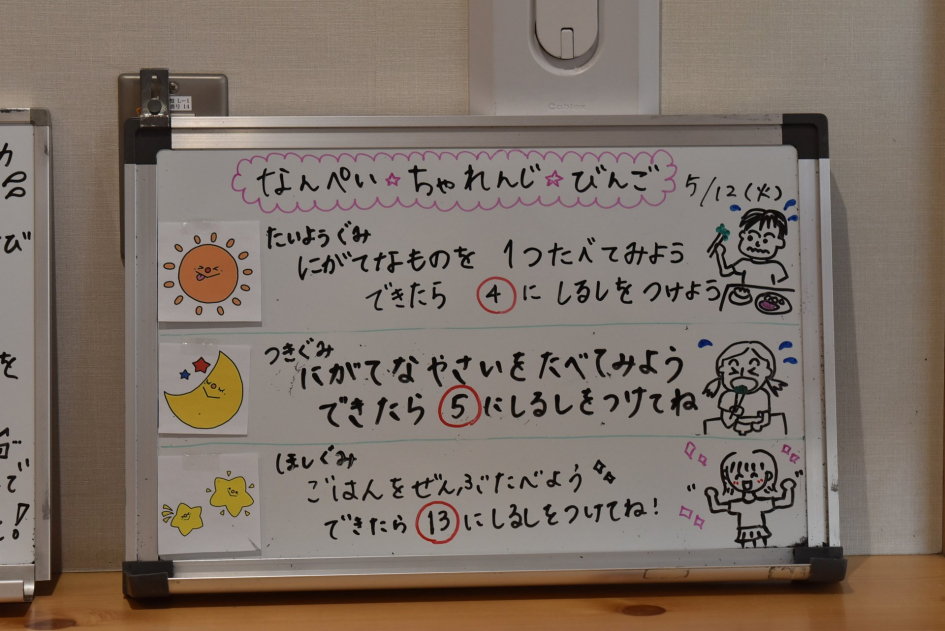 なんぺい☆ちゃれんじ☆びんご
5/12(火)
たいようぐみ
にがてなものを 1つたべてみよう
できたら ④に しるしをつけよう
つきぐみ
にがてなやさいをたべてみよう
できたら⑤にしるしをつけてね
ほしぐみ
ごはんをぜんぶたべよう
できたら⑬にしるしをつけてね!